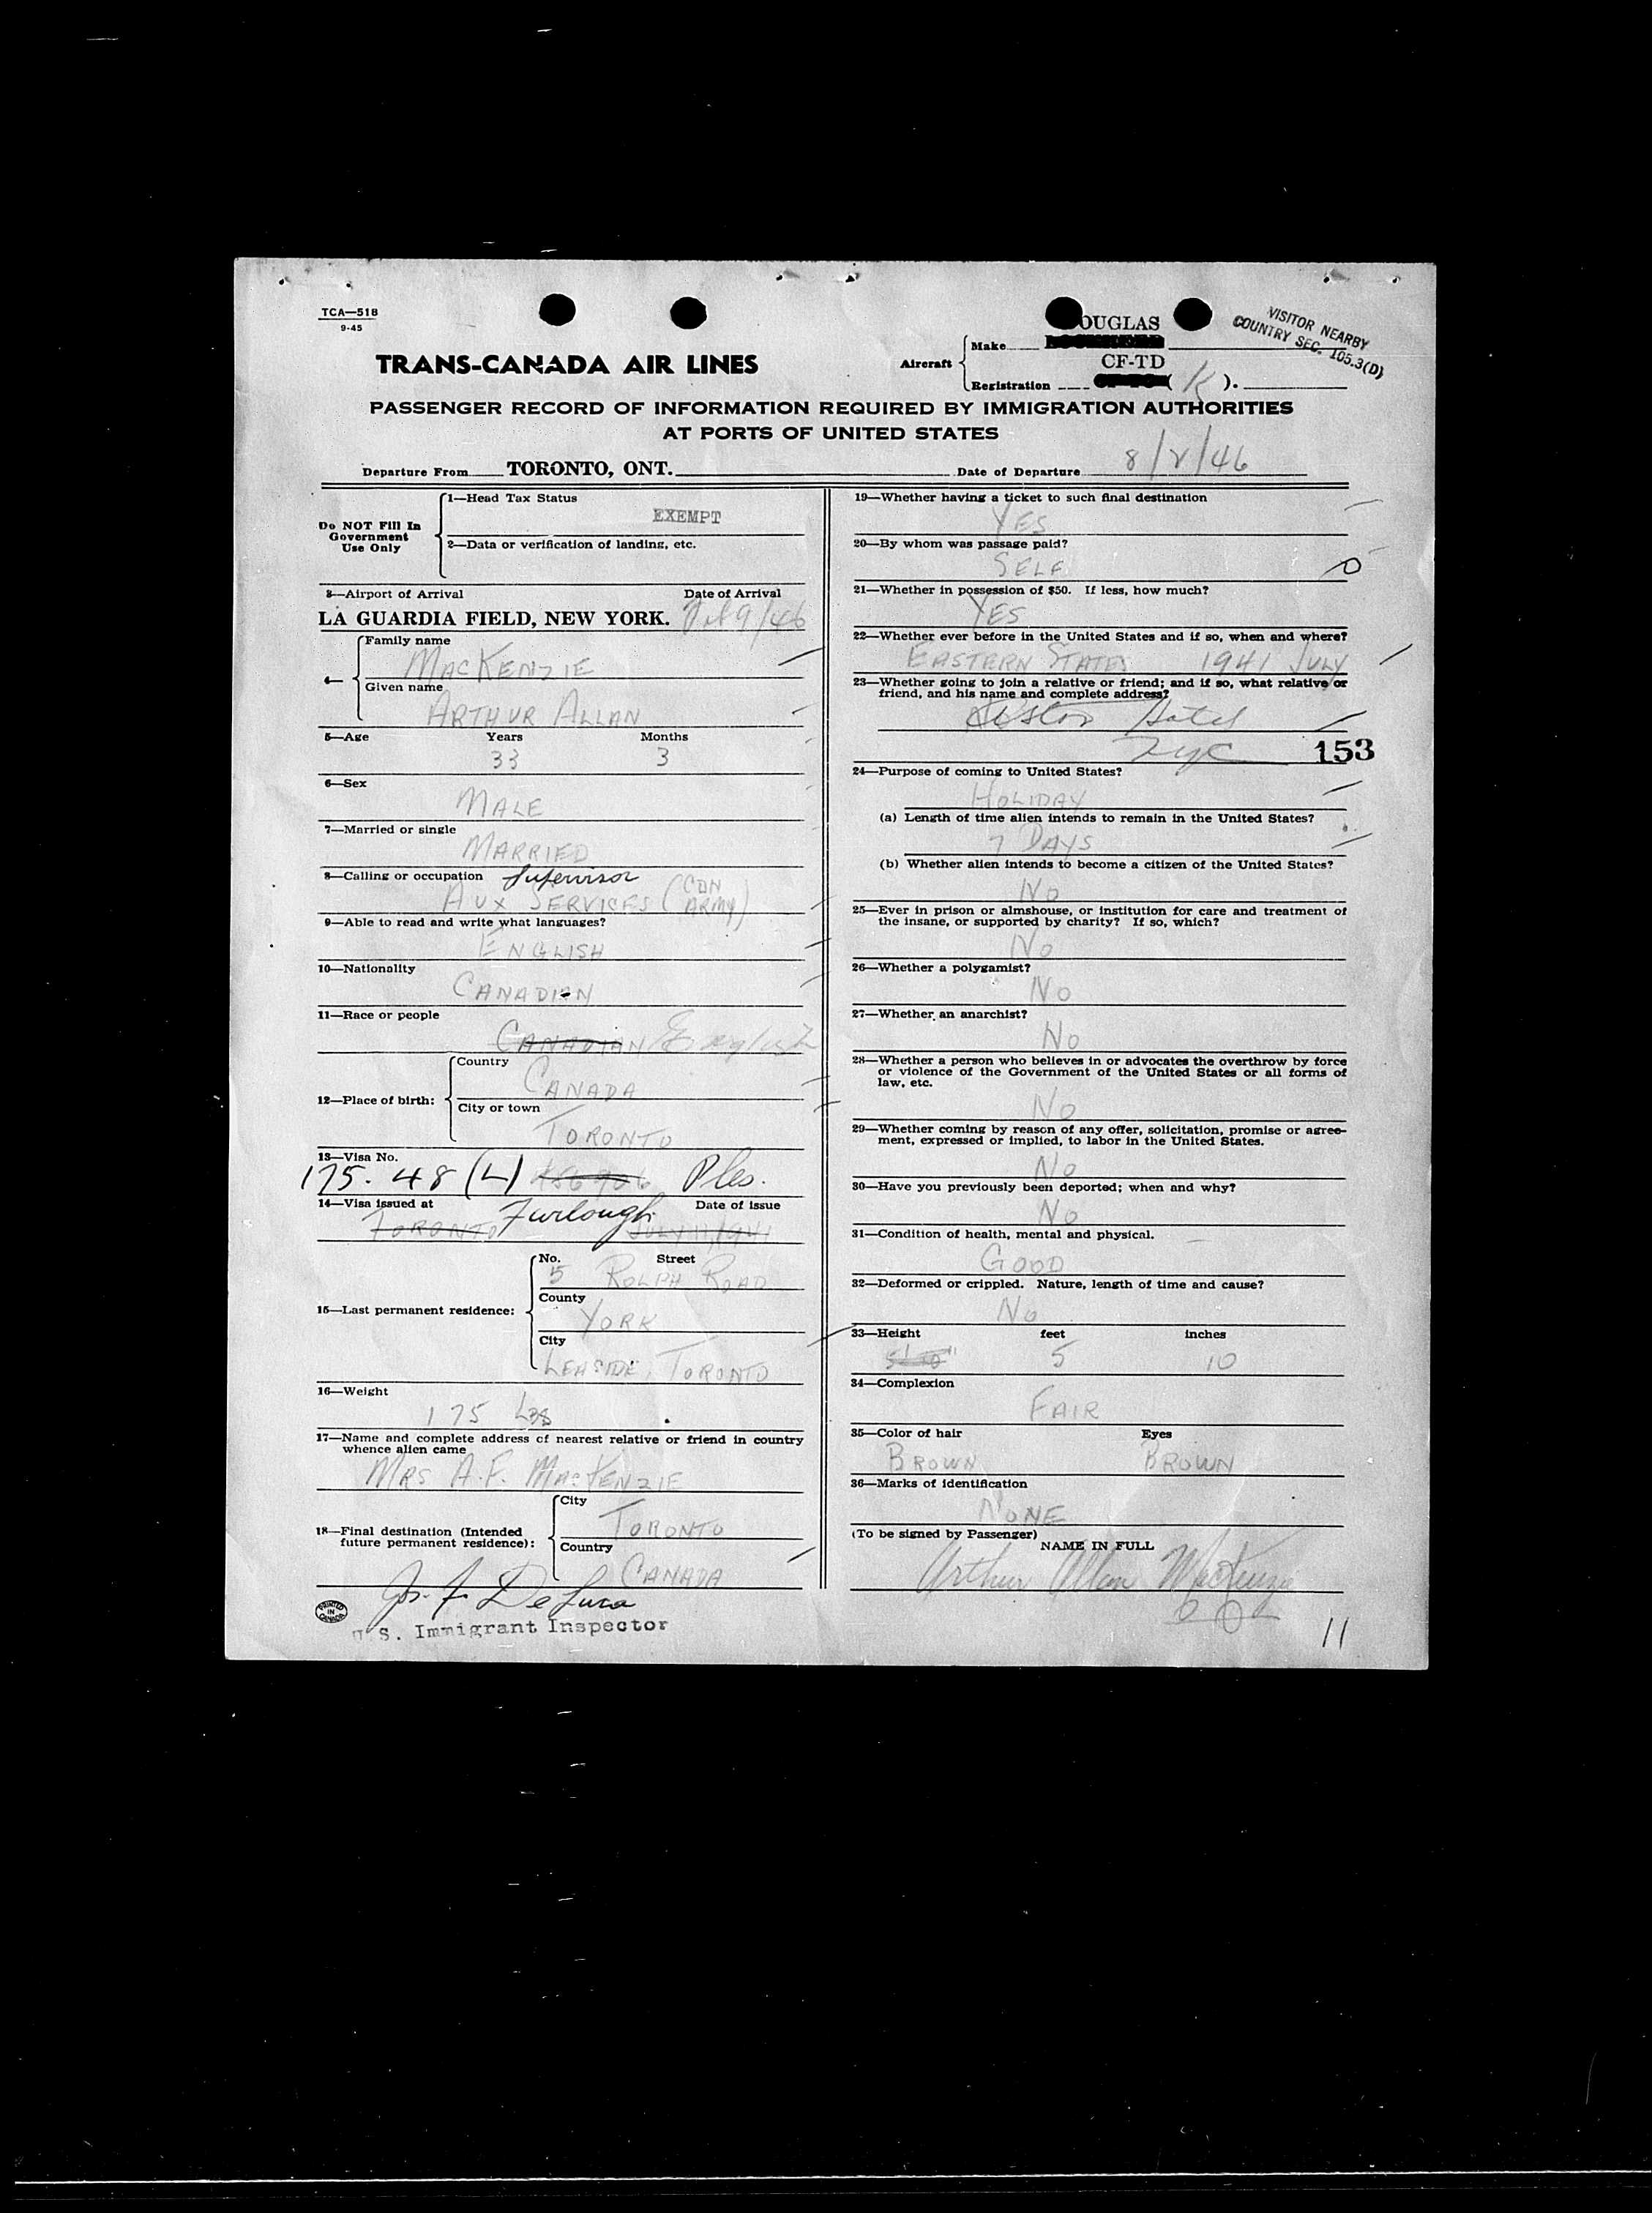 TCA—518
9-45
VISITOR NEARBY
COUNTRY SEC. 105.3(D)
TRANS-CANADA AIR LINES
Aircraft
Make OUGLAS
Registration CF-TD ( K ).
PASSENGER RECORD OF INFORMATION REQUIRED BY IMMIGRATION AUTHORITIES
AT PORTS OF UNITED STATES
Departure From TORONTO, ONT. Date of Departure 8/2/46
Do NOT Fill In
Government
Use Only
1—Head Tax Status
EXEMPT
2—Data or verification of landing, etc.
3—Airport of Arrival Date of Arrival
LA GUARDIA FIELD, NEW YORK. Feb 9/46
4—
Family name
MACKENZIE
Given name
ARTHUR ALLAN
5—Age Years Months
33 3
6—Sex
MALE
7—Married or single
MARRIED
8—Calling or occupation Supervisor
AUX SERVICES (CDN
ARMY)
9—Able to read and write what languages?
ENGLISH
10—Nationality
CANADIAN
11—Race or people
CANADIAN English
12—Place of birth:
Country
CANADA
City or town
TORONTO
13—Visa No.
175. 48 (L) Ples.
14—Visa issued at Date of issue
TORONTO Furlough JULY 11/1941
15—Last permanent residence:
No. Street
5 ROLPH ROAD
County
YORK
City
LEASIDE, TORONTO
16—Weight
175 LBS
17—Name and complete address of nearest relative or friend in country
whence alien came
MRS A.F. MACKENZIE
18—Final destination (Intended
future permanent residence):
City
TORONTO
Country
CANADA
Jos. F. DeLuca
U.S. Immigrant Inspector
PRINTED
IN
CANADA
19—Whether having a ticket to such final destination
YES
20—By whom was passage paid?
SELF
21—Whether in possession of $50. If less, how much?
YES
22—Whether ever before in the United States and if so, when and where?
EASTERN STATES 1941 JULY
23—Whether going to join a relative or friend; and if so, what relative or
friend, and his name and complete address?
Hotel
NYC
153
24—Purpose of coming to United States?
HOLIDAY
(a) Length of time alien intends to remain in the United States?
7 DAYS
(b) Whether alien intends to become a citizen of the United States?
NO
25—Ever in prison or almshouse, or institution for care and treatment of
the insane, or supported by charity? If so, which?
NO
26—Whether a polygamist?
NO
27—Whether an anarchist?
NO
28—Whether a person who believes in or advocates the overthrow by force
or violence of the Government of the United States or all forms of
law, etc.
NO
29—Whether coming by reason of any offer, solicitation, promise or agree-
ment, expressed or implied, to labor in the United States.
NO
30—Have you previously been deported; when and why?
NO
31—Condition of health, mental and physical.
GOOD
32—Deformed or crippled. Nature, length of time and cause?
NO
33—Height feet inches
5'10" 5 10
34—Complexion
FAIR
35—Color of hair Eyes
BROWN BROWN
36—Marks of identification
NONE
(To be signed by Passenger)
NAME IN FULL
Arthur Allan MacKenzie
11